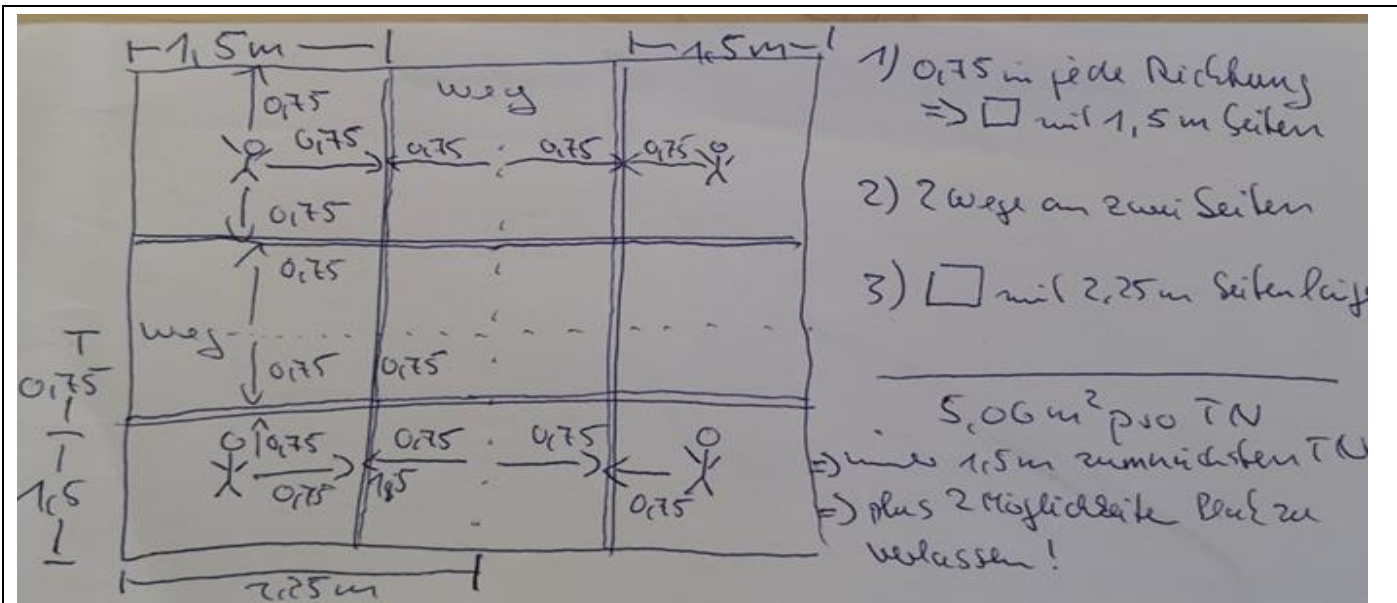 1,5m 1,5m
0,75 weg
0,75 0,75 0,75 0,75
0,75
0,75
weg
0,75 0,75
0,75
0,75 0,75 0,75
0,75 1,5 0,75
1,5
2,25m
1) 0,75 in jede Richtung
=> □ mit 1,5m Seiten
2) 2 Wege an zwei Seiten
3) □ mit 2,25m Seitenläng
5,06m² pro TN
=> 1,5m zum nächsten TN
=> plus 2 Möglichkeite Platz zu
verlassen!